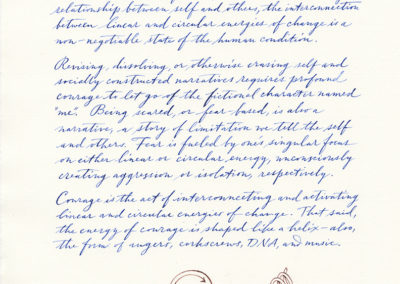 relationship between self and others, the interconnection
between linear and circular energies of change is a
non-negotiable state of the human condition.
Revising, dissolving, or otherwise erasing self and
socially constructed narratives requires profound
courage to let go of the fictional character named
"me". Being scared, or fear-based, is also a
narrative, a story of limitation we tell the self
and others. Fear is fueled by one's singular focus
on either linear or circular energy, unconsciously
creating aggression or isolation, respectively.
Courage is the act of interconnecting and activating
linear and circular energies of change. That said,
the energy of courage is shaped like a helix – also,
the form of augers, corkscrews, DNA, and music.